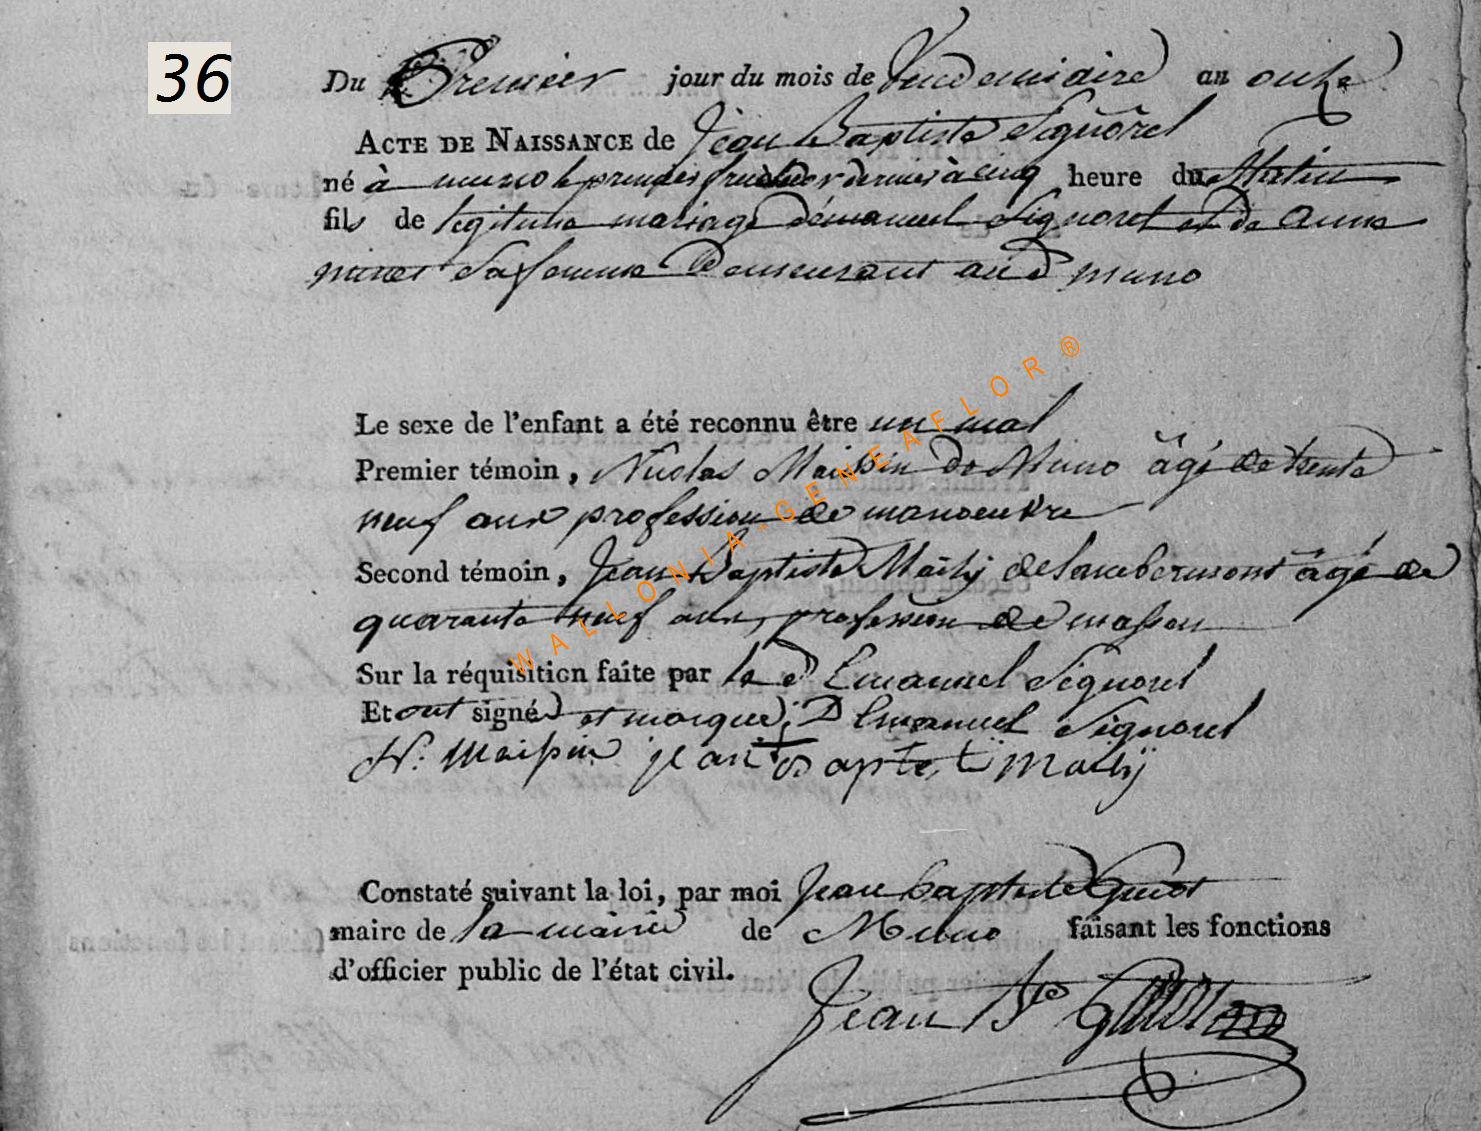 36
Du Premier jour du mois de Vendemiaire an onze
ACTE DE NAISSANCE de Jean Baptiste Signorel
né à muno le premier fructidor dernier à cinq heure du Matin
fils de legitime mariage démanuel Signorel et de anne
sa femme Demeurant aud muno
Le sexe de l'enfant a été reconnu être un mal
Premier témoin, Nicolas Maissin de Muno âgé de trente
neuf ans profession de manoeuvre
Second témoin, Jean Baptiste Mailij de Lambermont âgé de
quarante neuf ans, profession de masson
Sur la réquisition faite par le d Emanuel Signorel
Et ont signé et marque D Emanuel Signorel
N. Maissin jean baptet Mailij
Constaté suivant la loi, par moi Jean baptiste Guiot
maire de la mairie de Muno faisant les fonctions
d'officier public de l'état civil.
Jean Bte Guiot
WALLONIA-GENEAFLOR®